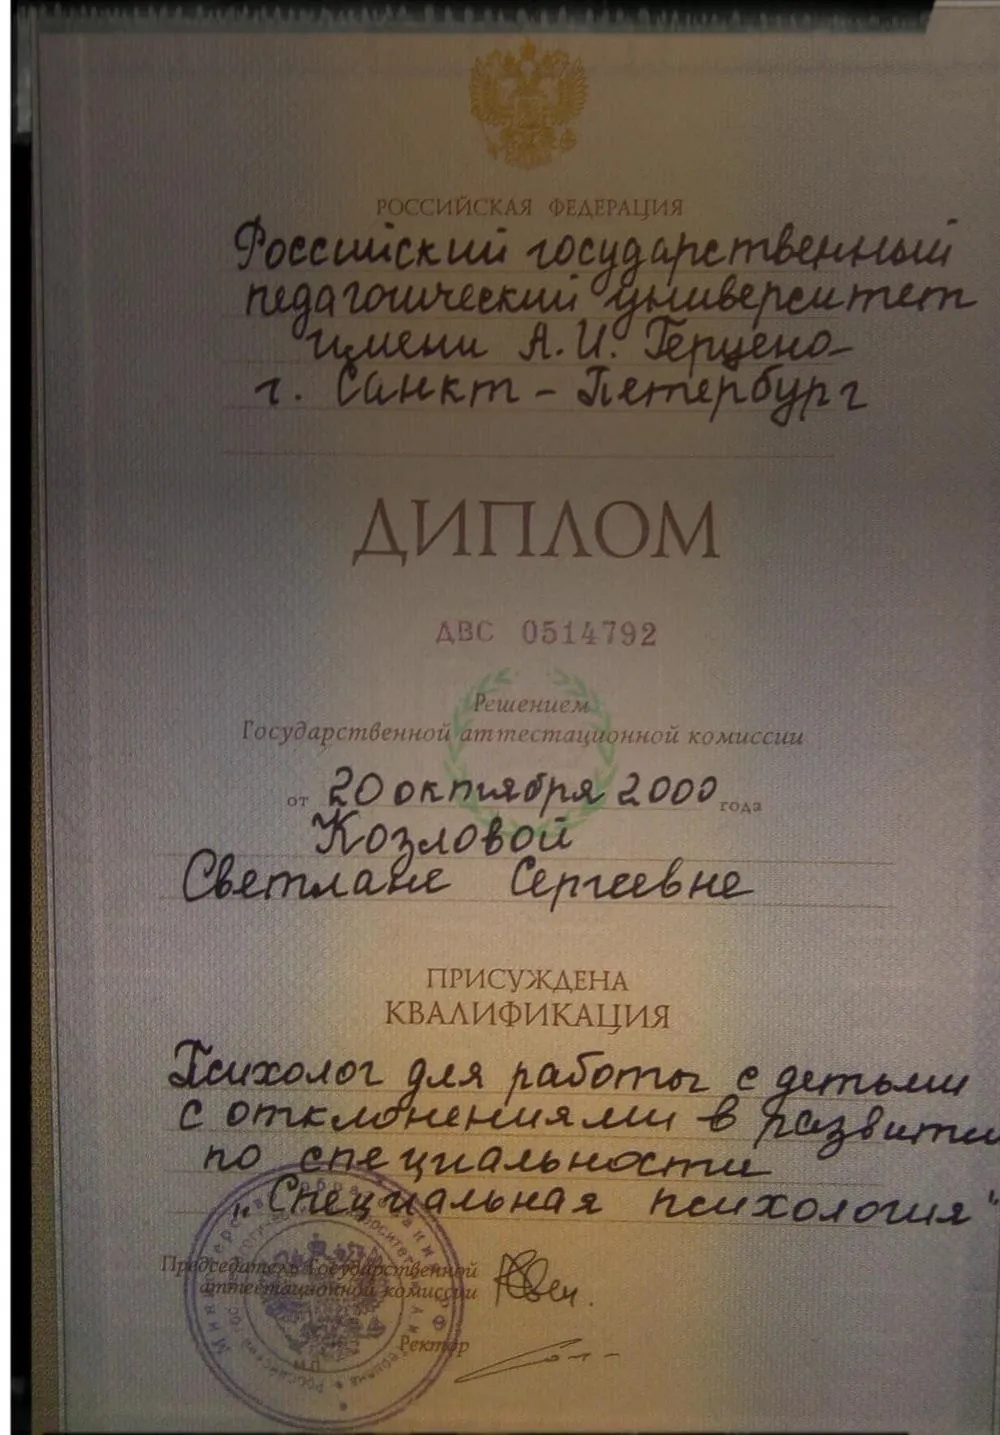 РОССИЙСКАЯ ФЕДЕРАЦИЯ
Российский государственный
педагогический университет
имени А.И. Герцена
г. Санкт-Петербург
ДИПЛОМ
ДВС 0514792
Решением
Государственной аттестационной комиссии
от 20 октября 2000 года
Козловой
Светлане Сергеевне
ПРИСУЖДЕНА
КВАЛИФИКАЦИЯ
Психолог для работы с детьми
с отклонениями в развитии
по специальности
„Специальная психология"
Председатель Государственной
аттестационной комиссии
Ректор